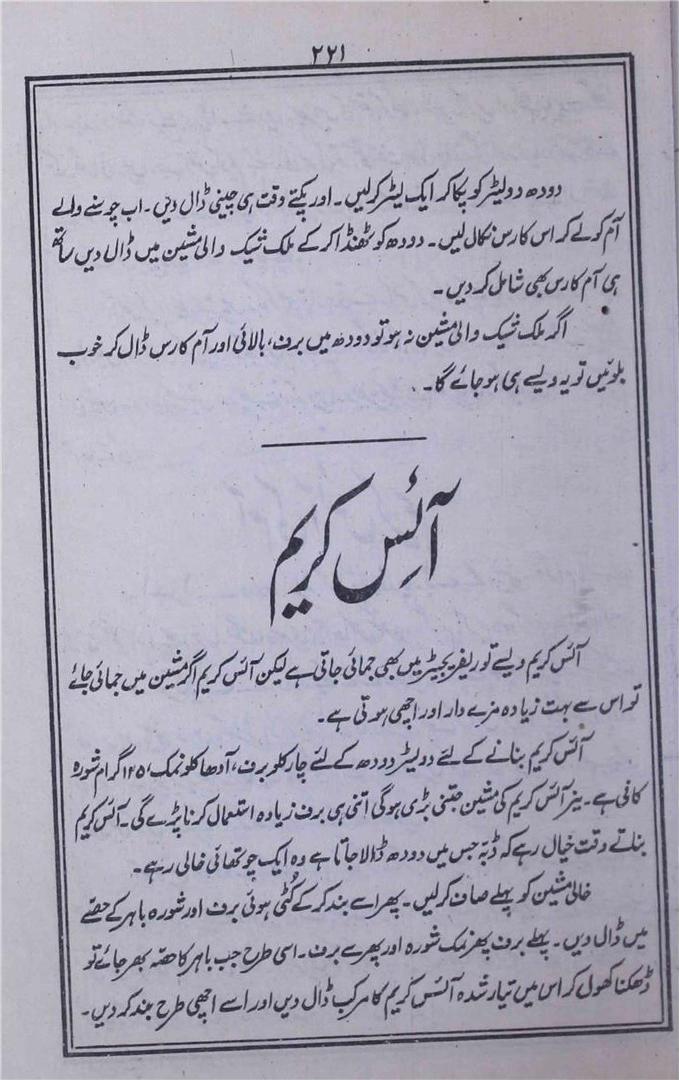 ۲۲۱
دودھ دو لیٹر کو پکا کر ایک لیٹر کرلیں۔ اور پکتے وقت ہی چینی ڈال دیں۔ اب چوسنے والے
آم کو لے کر اس کا رس نکال لیں۔ دودھ کو ٹھنڈا کر کے ملک شیک والی مشین میں ڈال دیں ساتھ
ہی آم کا رس بھی شامل کر دیں۔
اگر ملک شیک والی مشین نہ ہو تو دودھ میں برف، بالائی اور آم کا رس ڈال کر خوب
بلوئیں تو یہ ویسے ہی ہو جائے گا۔
آئس کریم
آئس کریم ویسے تو ریفریجیٹر میں بھی جمائی جاتی ہے لیکن آئس کریم اگر مشین میں جمائی جائے
تو اس سے بہت زیادہ مزے دار اور اچھی ہوتی ہے۔
آئس کریم بنانے کے لئے دو لیٹر دودھ کے لئے چار کلو برف، آدھا کلو نمک، ۱۲۵ گرام شورہ
کافی ہے۔ نیز آئس کریم کی مشین جتنی بڑی ہوگی اتنی ہی برف زیادہ استعمال کرنا پڑے گی۔ آئس کریم
بناتے وقت خیال رہے کہ ڈبہ جس میں دودھ ڈالا جاتا ہے وہ ایک چوتھائی خالی رہے۔
خالی مشین کو پہلے صاف کرلیں۔ پھر اسے بند کر کے کُٹی ہوئی برف اور شورہ باہر کے حصے
میں ڈال دیں۔ پہلے برف پھر نمک شورہ اور پھر سے برف۔ اسی طرح جب باہر کا حصہ بھر جائے تو
ڈھکنا کھول کر اس میں تیار شدہ آئس کریم کا مرکب ڈال دیں اور اسے اچھی طرح بند کر دیں۔